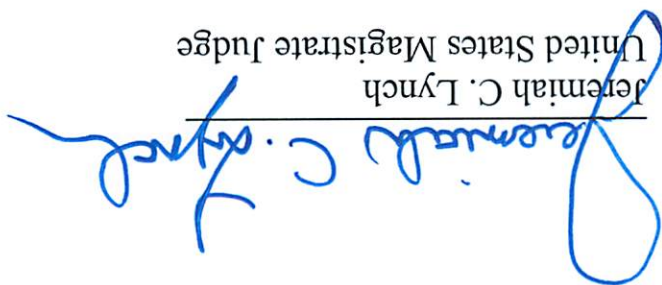 Jeremiah C. Lynch
Jeremiah C. Lynch
United States Magistrate Judge